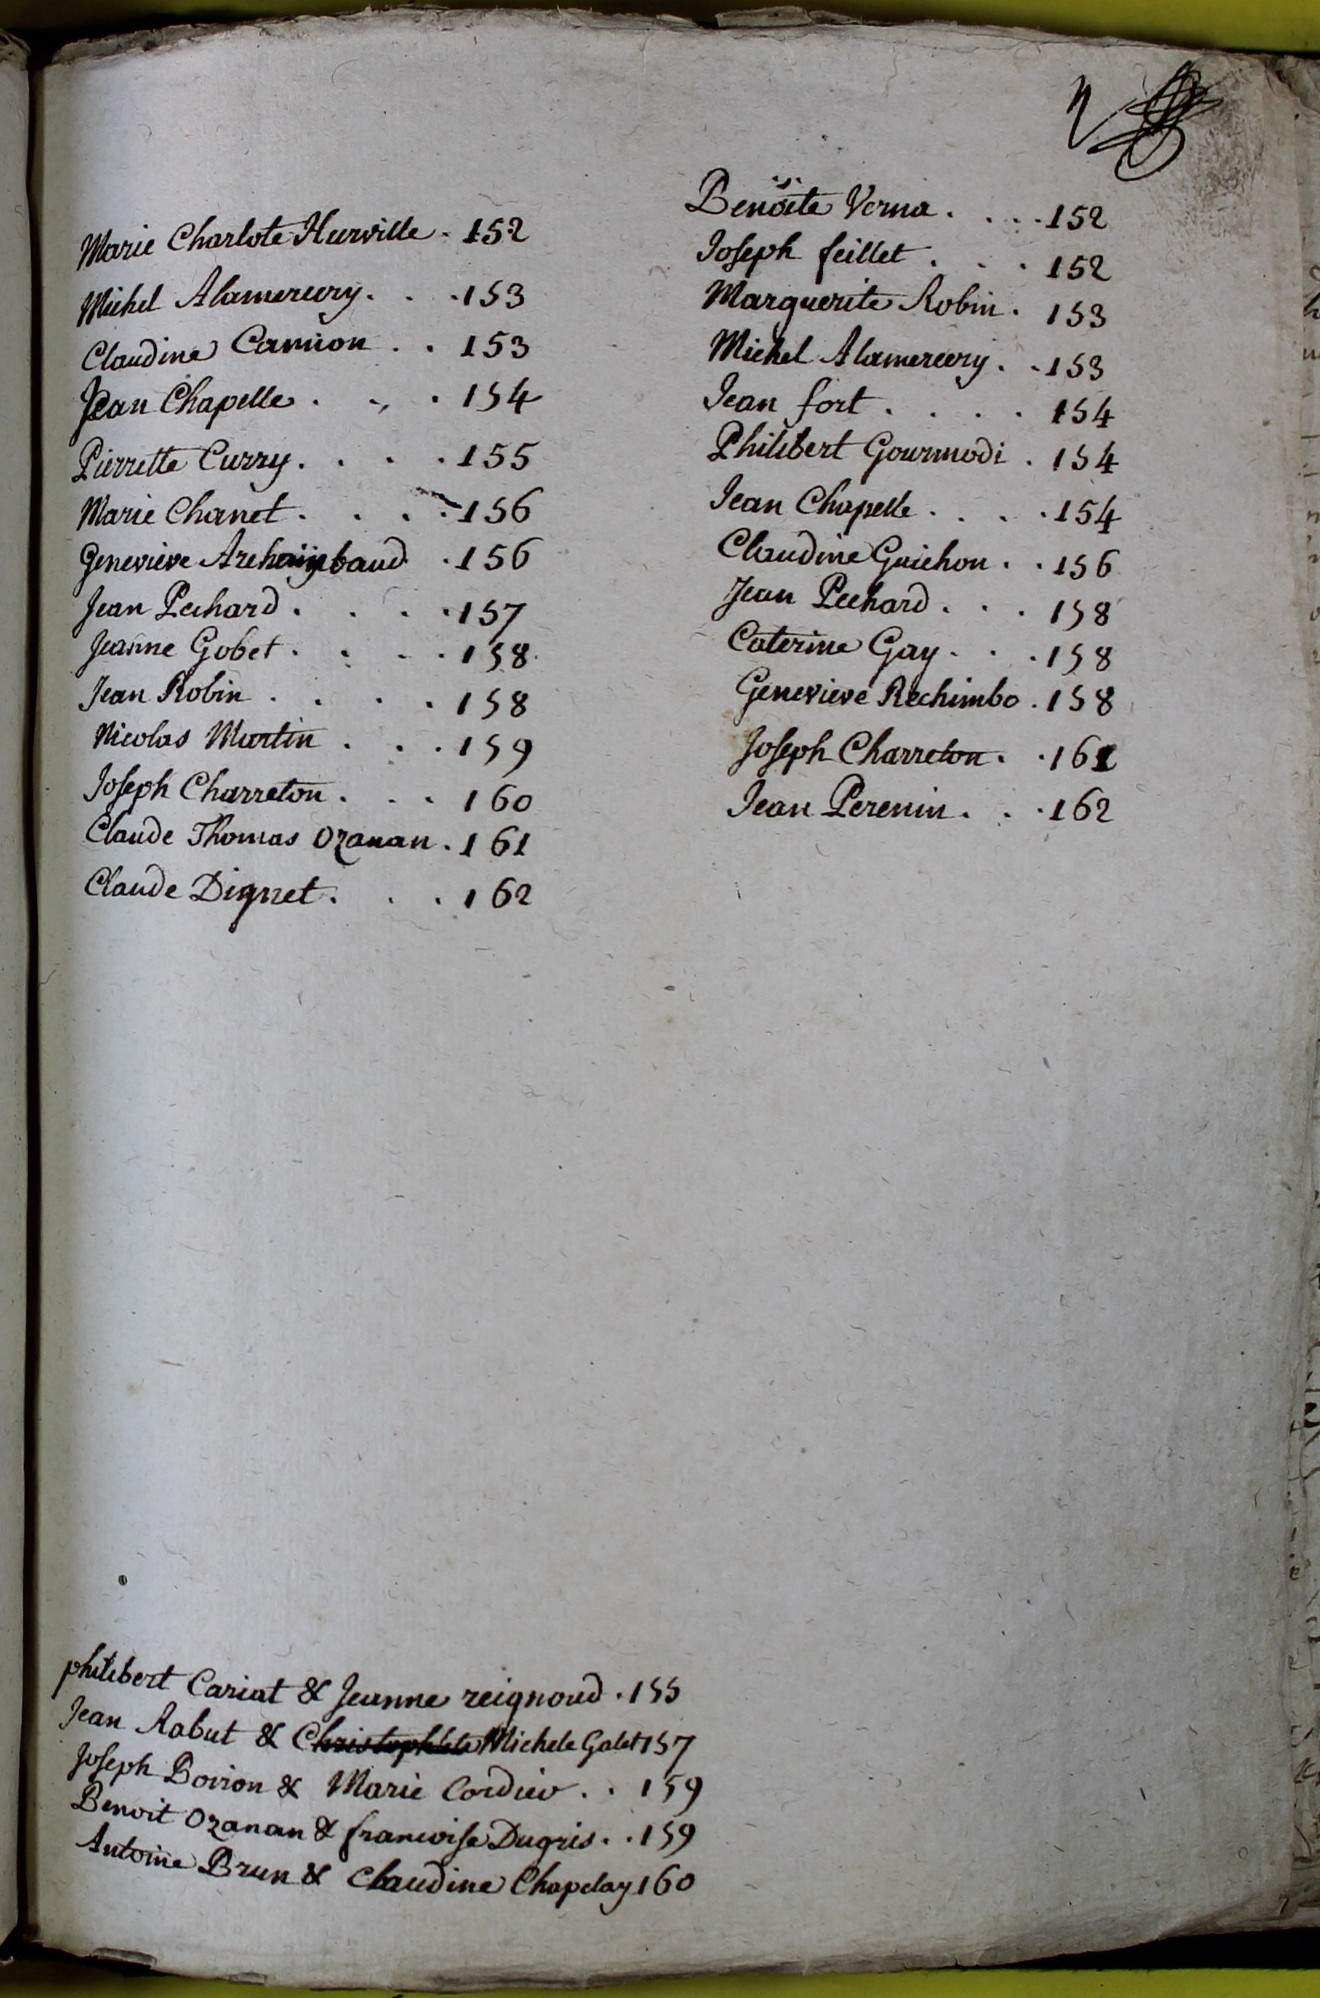 Marie Charlote Hurville . 152
Michel Alamercery . . . 153
Claudine Camion . . 153
Jean Chapelle . . . 154
Pierrette Curzy . . . . 155
Marie Chanet . . . . 156
Genevieve Archaijnbaud . 156
Jean Pechard . . . . 157
Jeanne Gobet . . . . 158
Jean Robin . . . . 158
Nicolas Martin . . . 159
Joseph Charreton . . . 160
Claude Thomas Ozanan . 161
Claude Dignet . . . 162
Benoite Verna . . . . 152
Joseph feillet . . . 152
Marguerite Robin . 153
Michel Alamercery . . 153
Jean fort . . . . 154
Philibert Gourmodi . 154
Jean Chapelle . . . . 154
Claudine Guichon . . 156
Jean Pechard . . . 158
Caterine Gay . . . 158
Genevieve Rechimbo . 158
Joseph Charreton . . 161
Jean Perenin . . . 162
philibert Cariat & Jeanne reignoud . 155
Jean Rabut & Christophle Michele Galet 157
Joseph Boiron & Marie Cordier . . 159
Benoit Ozanan & francoise Dugris . . 159
Antoine Brun & Claudine Chapelay 160